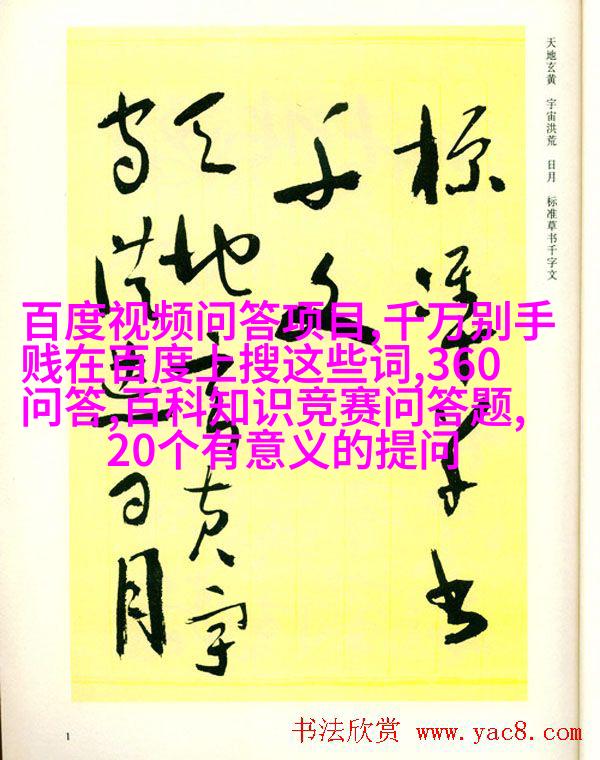 天地玄黄 宇宙洪荒 日月 标准草书千字文
标准草书
千文
天地玄黄宇
宙洪荒日月
百度视频问答项目,千万别手
贱在百度上搜这些词,360
问答,百科知识竞赛问答题,
20个有意义的提问
1
书法欣赏 www.yac8.com